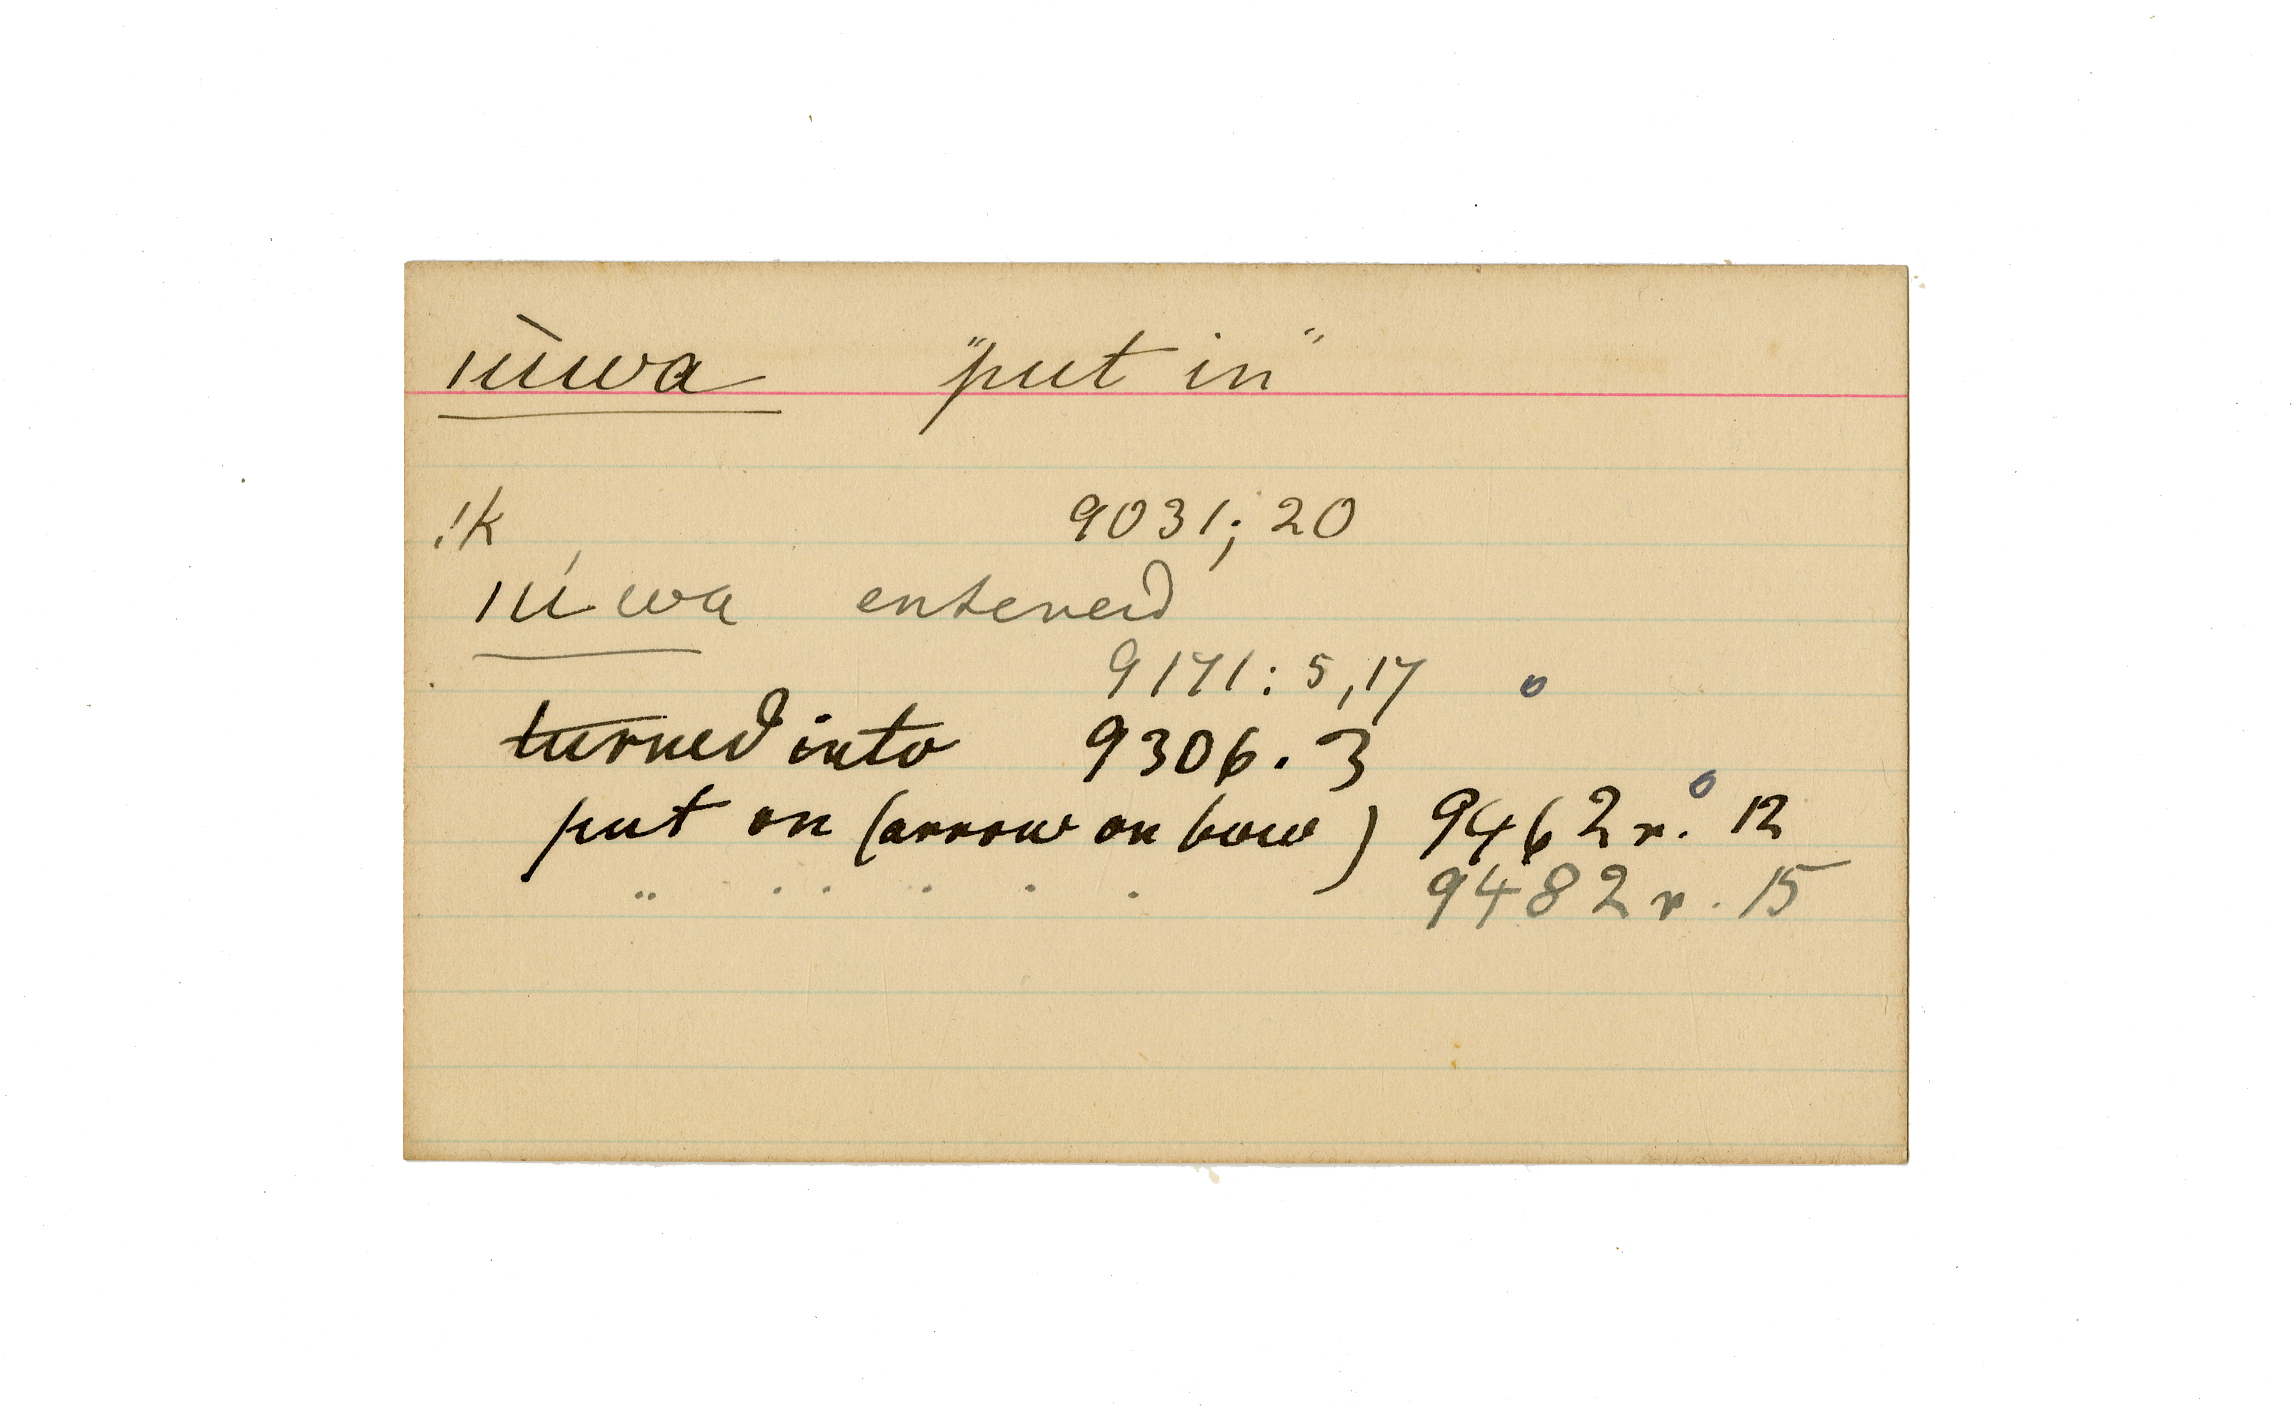 nìwa "put in"
!k 9031; 20
ní wa entered
9171: 5, 17 o
turned into 9306. 3
put on (arrow on bow) 9462 r. 12
" . . . . . 9482 r. 15